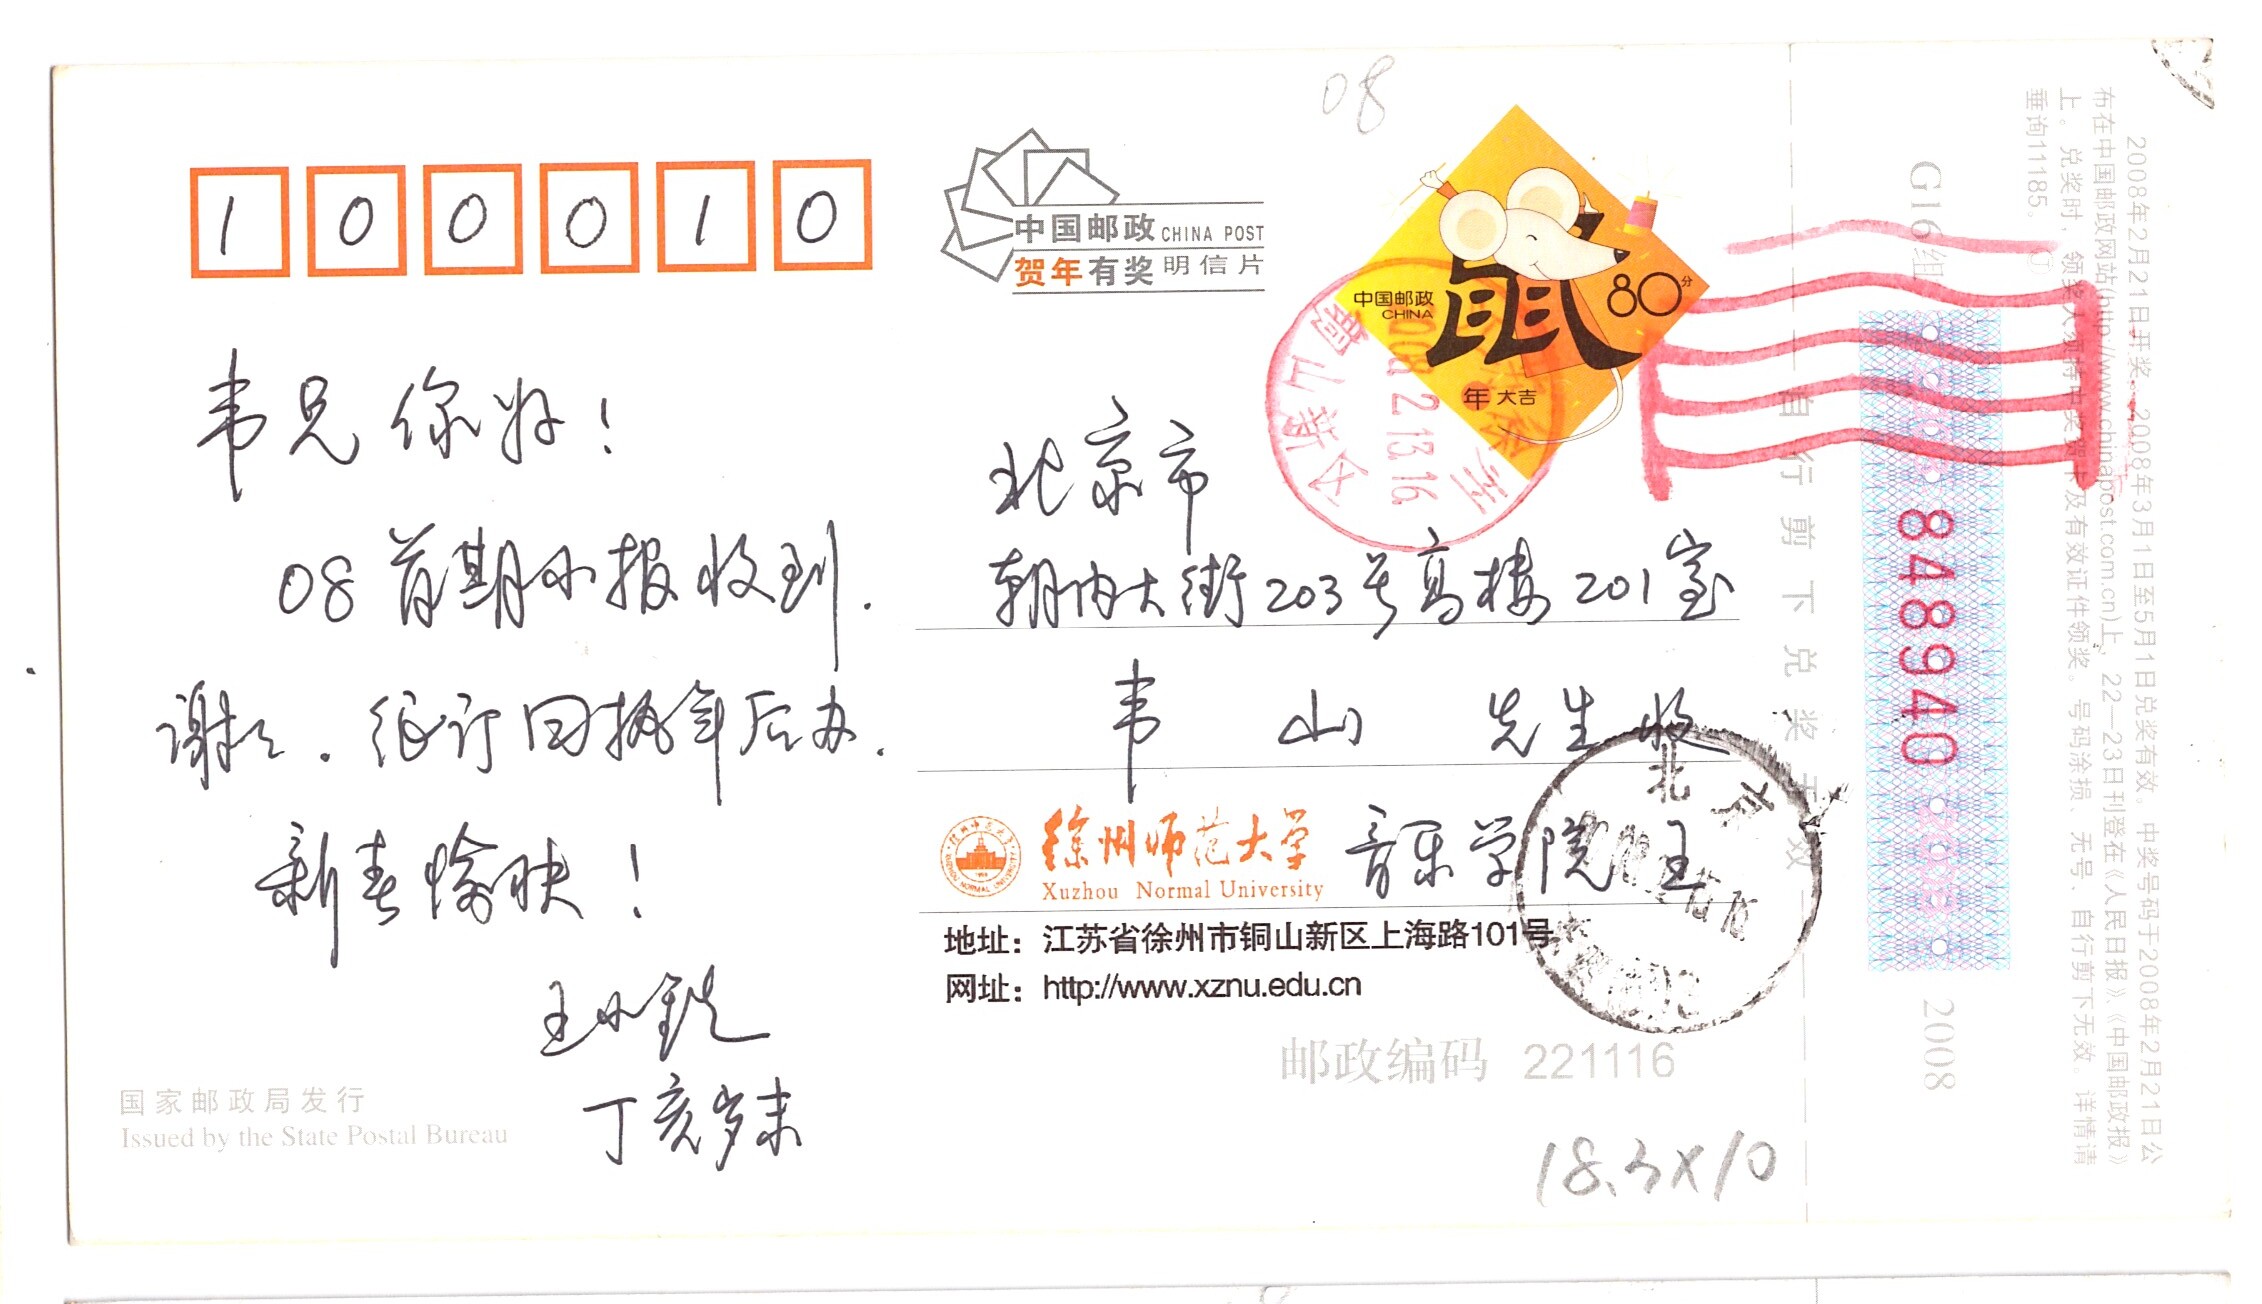 100010
08
中国邮政 CHINA POST
贺年有奖 明信片
中国邮政
CHINA
鼠
80分
年大吉
韦兄你好！
08首期小报收到.
谢谢.征订回执年后办.
新春愉快！
王小
丁亥岁末
国家邮政局发行
Issued by the State Postal Bureau
北京市
朝内大街203号高楼201室
韦 山 先生收
徐州师范大学 音乐学院 王
Xuzhou Normal University
地址：江苏省徐州市铜山新区上海路101号
网址：http://www.xznu.edu.cn
邮政编码 221116
18.3×10
2008.2.13.16
江苏徐州
北京
自行剪下兑奖无效
G16组
848940
2008
2008年2月21日开奖，2008年3月1日至5月1日兑奖有效。中奖号码于2008年2月21日公
布在中国邮政网站(http://www.chinapost.com.cn)上、22—23日刊登在《人民日报》《中国邮政报》
上。兑奖时，领奖人须持中奖贺卡及有效证件领奖。号码涂损、无号、自行剪下无效。详情请
垂询11185。